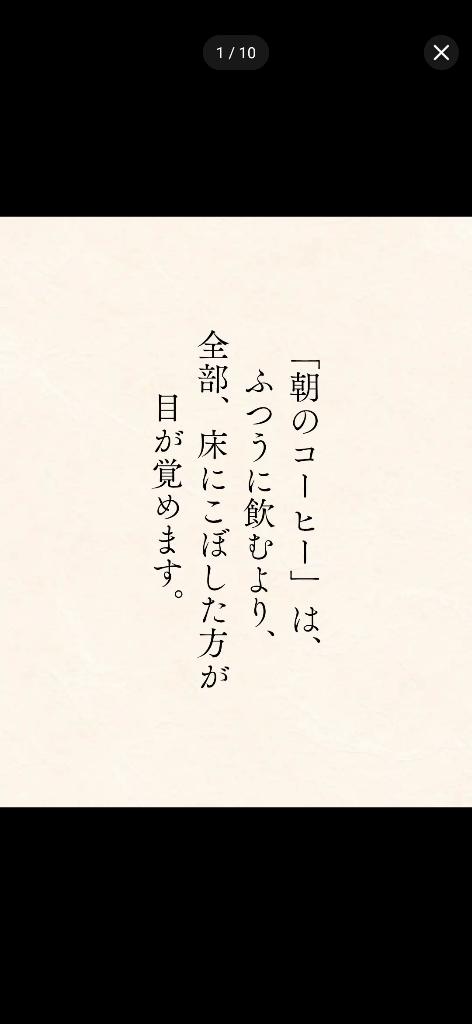 1 / 10
「朝のコーヒー」は、
ふつうに飲むより、
全部、床にこぼした方が
目が覚めます。